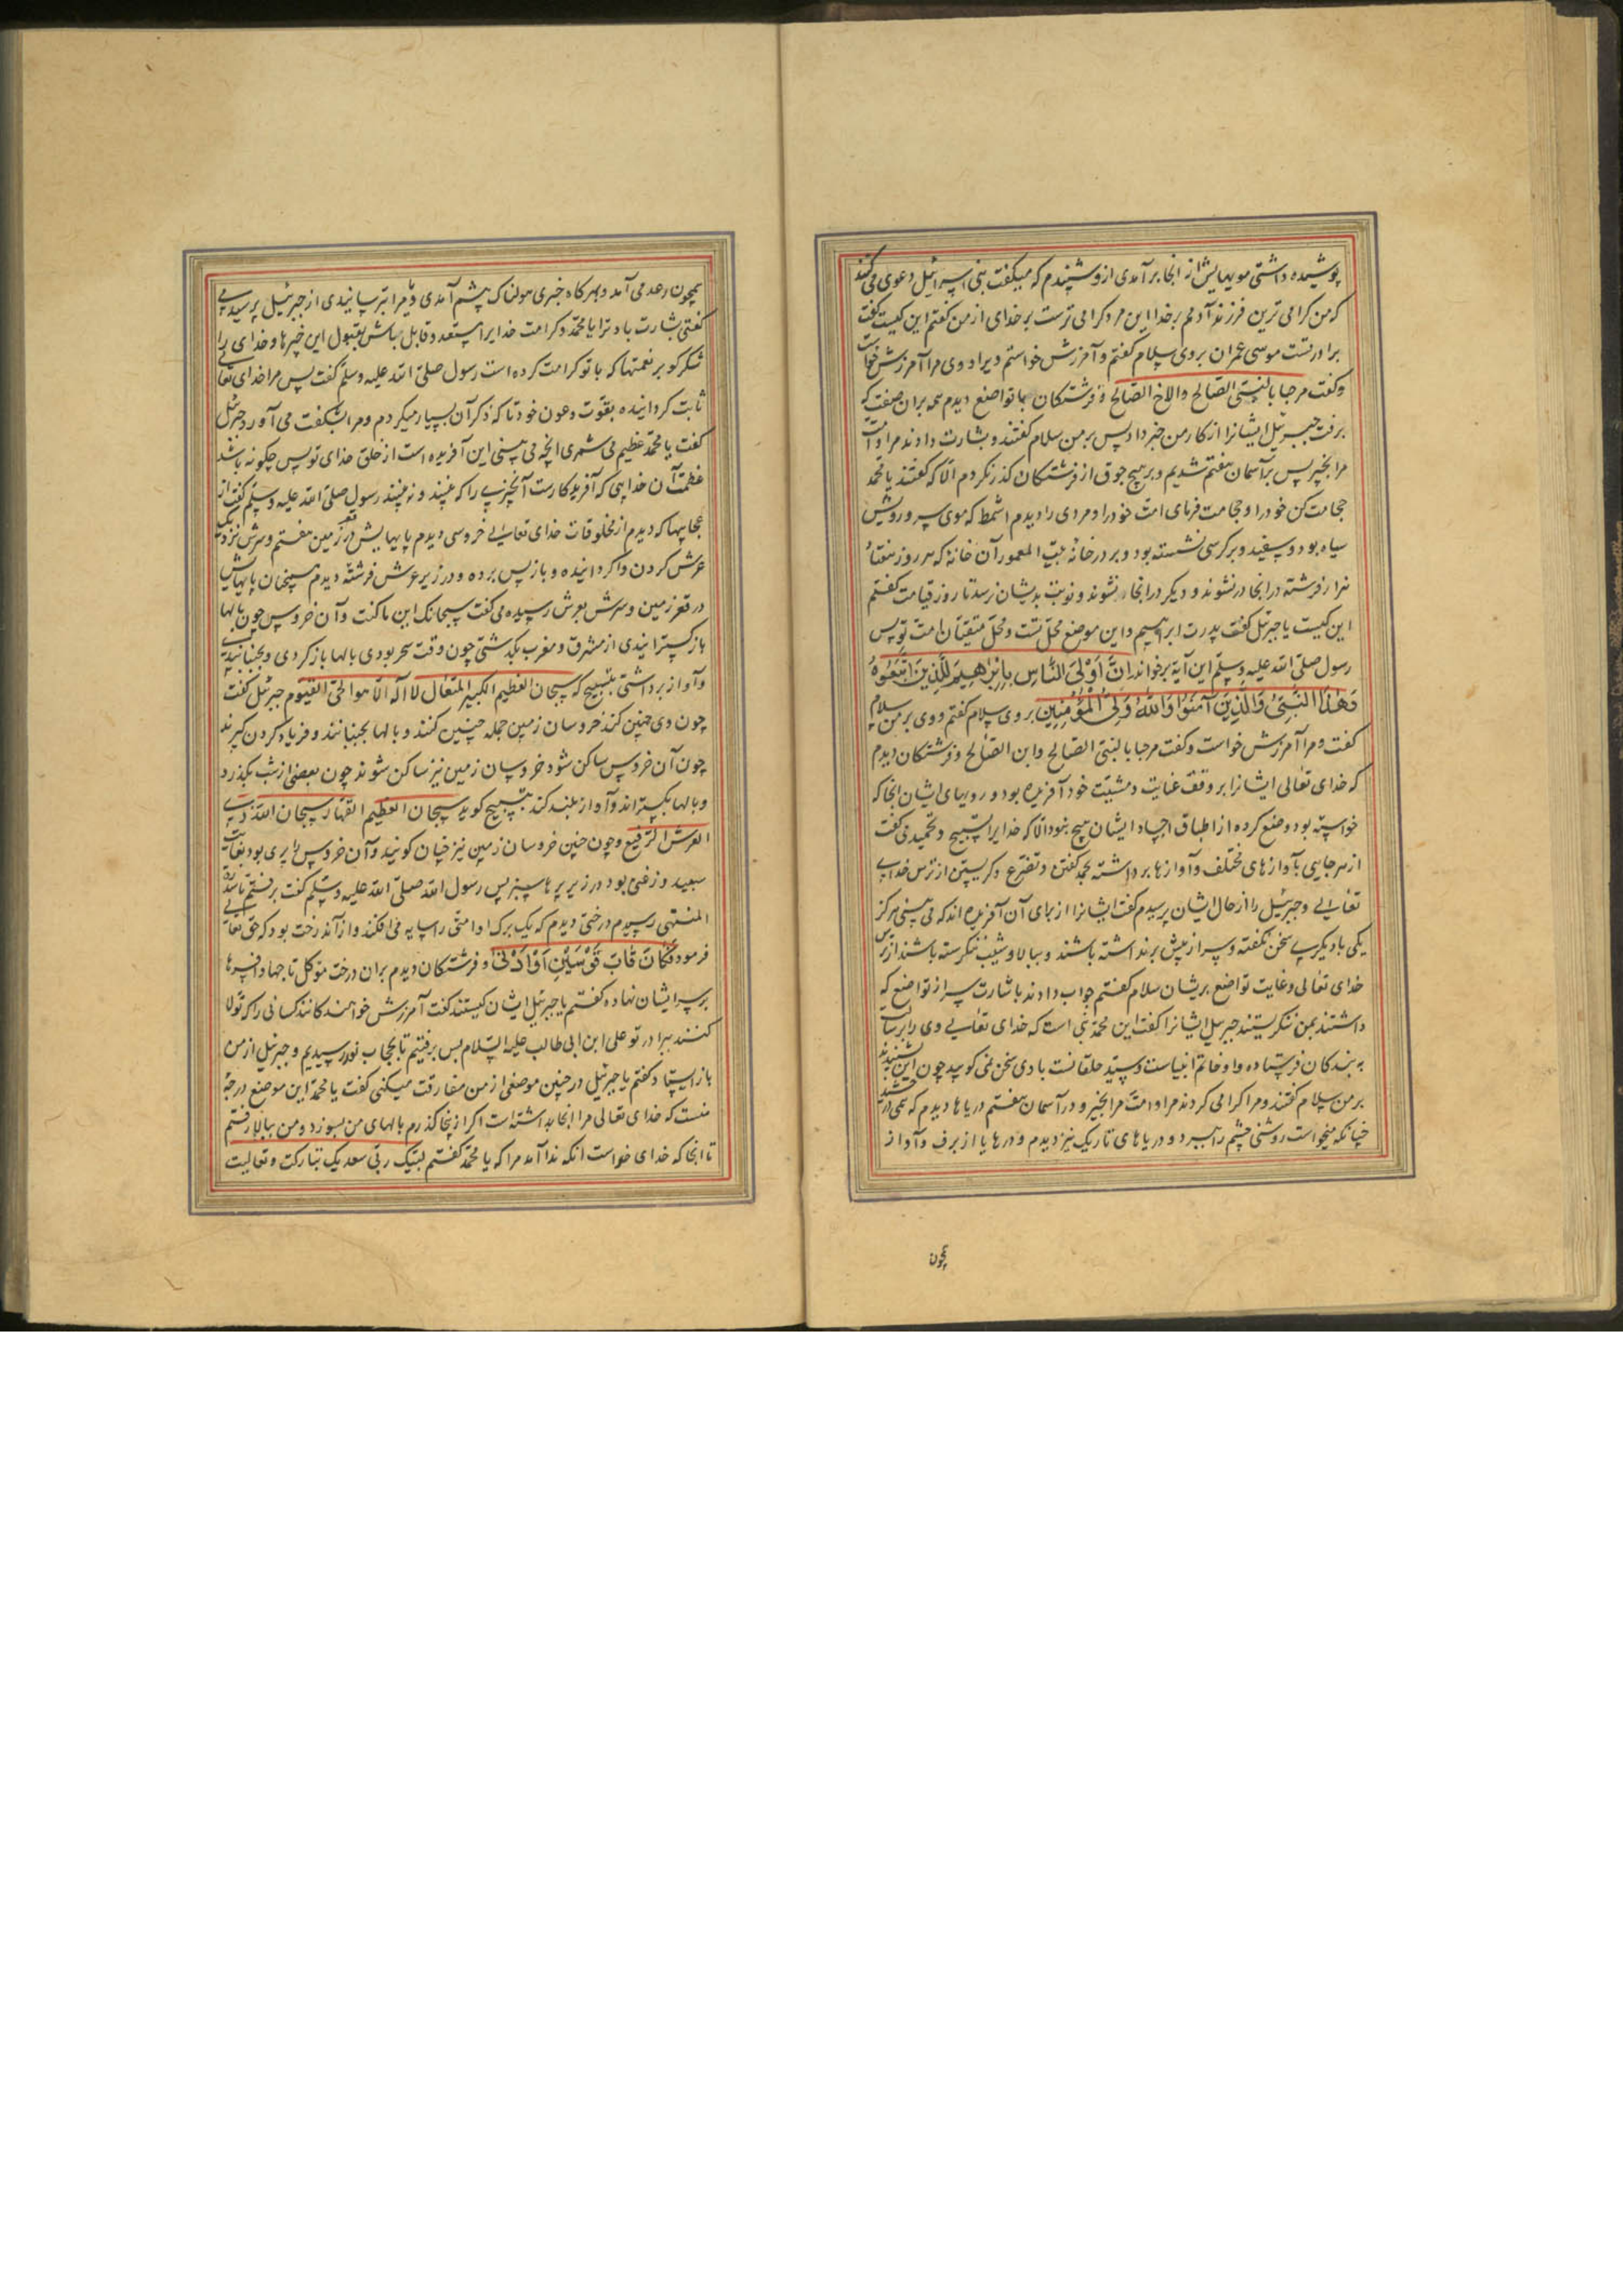 پوشیده داشتی مویهایش از انجا برآمدی ازو شنیدم که میگفت بنی اسرائیل دعوی می کنند
که من کرامی ترین فرزند آدمم بر خدا این مرد کرامی ترست بر خدای از من کفتم این کیست کفت
برادرتست موسی عمران بروی سلام کفتم و آمرزش خواستم ویرا و وی مرا آمرزش خواست
وکفت مرحبا بالنبی الصالح والاخ الصالح و فرشتکان با تواضع دیدم هم بران صفت که
برفت جبرئیل ایشانرا از کار من خبر داد پس بر من سلام کفتند و بشارت دادند مرا و امت
مرا بخیر پس بر آسمان هفتم شدیم و بر هیچ جوق از فرشتکان کذر نکردم الا که کفتند یا محمد
حجامت کن خود را و حجامت فرمای امت خود را و مردی را دیدم اشمط که موی سر و رویش
سیاه بود و سفید و بر کرسی نشسته بود و بر در خانهٔ بیت المعمور آن خانهٔ که هر روز هفتاد
هزار فرشته در انجا در شوند و دیکر در انجا نشوند و نوبت بدیشان نرسد تا روز قیامت کفتم
این کیست یا جبرئیل کفت پدرت ابراهیم و این موضع محل تست و محل متقیان امت تو پس
رسول صلی الله علیه وسلم این آیه برخواند ان اَوْلَی النَّاسِ بِاِبْرٰهِیمَ لَلَّذِینَ اتَّبَعُوهُ
وَهٰذَا النَّبِیُّ وَالَّذِینَ آمَنُوا وَاللّٰهُ وَلِیُّ الْمُؤْمِنِینَ بروی سلام کفتم و وی بر من سلام
کفت و مرا آمرزش خواست و کفت مرحبا بالنبی الصالح وابن الصالح و فرشتکان دیدم
که خدای تعالی ایشانرا بر وفق عنایت و مشیت خود آفریده بود و رویهای ایشان انجا که
خواسته بود وضع کرده از اطباق اجساد ایشان هیچ نبود الا که خدایرا تسبیح و تحمید می کفت
از هر جایی بآوازهای مختلف و آوازها برداشته بحمد کفتن و تضرع و کریستن از ترس خدای
تعالی و جبرئیل را از حال ایشان پرسیدم کفت ایشانرا از برای آن آفریده اند که می بینی هرکز
یکی با دیکری سخن نکفته و سر از پیش برنداشته باشند و ببالا و شیب ننکرسته باشند از ترس
خدای تعالی وغایت تواضع بریشان سلام کفتم جواب دادند باشارت سر از تواضع که
داشتند بمن ننکریستند جبرئیل ایشانرا کفت این محمد نبی است که خدای تعالی وی را برسالت
به بندکان فرستاده و او خاتم انبیاست و سید خلقانست با وی سخن نمی کویید چون این شنیدند
بر من سلام کفتند و مرا اکرامی کردند مرا و امت مرا بخیر و در آسمان هفتم دریاها دیدم که می درخشید
چنانکه میخواست روشنی چشم را ببرد و دریاهای تاریک نیز دیدم و درهایا از برف و آواز
همچون
همچون رعد می آمد و هر کاه چیزی هولناک پیشم آمدی و مرا بترسانیدی از جبرئیل پرسیدمی
کفتی بشارت باد ترا یا محمد و کرامت خدایرا مستعد و قابل باش بقبول این خیرها و خدای را
شکر کو بر نعمتها که با تو کرامت کرده است رسول صلی الله علیه وسلم کفت پس مرا خدای تعالی
ثابت کردانیده بقوت وعون خود تا که ذکر آن بسیار میکردم و مرا بشکفت می آورد جبرئیل
کفت یا محمد عظیم می شمری انچه می بینی این آفریده است از خلق خدای تو پس چکونه باشد
عظمت آن خدایی که آفریدکارست آنچیزی را که بینند و نه بینند رسول صلی الله علیه وسلم کفت از
عجایبها که دیدم از مخلوقات خدای تعالی خروسی دیدم پایهایش در قعر زمین هفتم و سرش نزدیک
عرش کردن واکردانیده و باز پس برده و در زیر عرش فرشته دیدم همچنان پایهایش
در قعر زمین و سرش بعرش رسیده می کفت سبحانک این ما کنت و آن خروس چون بالها
باز کسترانیدی از مشرق و مغرب بکذشتی چون وقت سحر بودی بالها باز کردی و بجنبانیدی
و آواز برداشتی بتسبیح که سبحان العظیم الکبیر المتعال لا اله الا هو الحی القیوم جبرئیل کفت
چون وی چنین کند خروسان زمین جمله چنین کنند و بالها بجنبانند و فریاد کردن کیرند
چون آن خروس ساکن شود خروسان زمین نیز ساکن شوند چون بعضی از شب بکذرد
و بالها بکستراند و آواز بلند کند بتسبیح کوید سبحان العظیم القهار سبحان الله ذی
العرش الرفیع وچون چنین خروسان زمین نیز چنان کویند و آن خروس را پری بود بغایت
سپید و زغبی بود در زیر پرها سبز پس رسول الله صلی الله علیه وسلم کفت برفتم تا بسدرة
المنتهی رسیدم درختی دیدم که یک برک او امتی را سایه می افکند و از آن درخت بود که حق تعالی
فرمود فَکَانَ قَابَ قَوْسَیْنِ اَوْ اَدْنٰی و فرشتکان دیدم بران درخت موکل تاجها و افسرها
بر سر ایشان نهاده کفتم یا جبرئیل ایشان کیستند کفت آمرزش خواهند کانند کسانی را که تولا
کنند ببرادر تو علی ابن ابی طالب علیه السلام پس برفتیم تا بحجاب نور رسیدیم و جبرئیل از من
باز ایستاد کفتم یا جبرئیل در چنین موضعی از من مفارقت میکنی کفت یا محمد این موضع درجهٔ
منست که خدای تعالی مرا انجا بداشته است اکر ازینجا کذرم بالهای من بسوزد و من ببالا رفتم
تا انجا که خدای خواست انکه ندا آمد مرا که یا محمد کفتم لبیک ربی سعدیک تبارکت وتعالیت